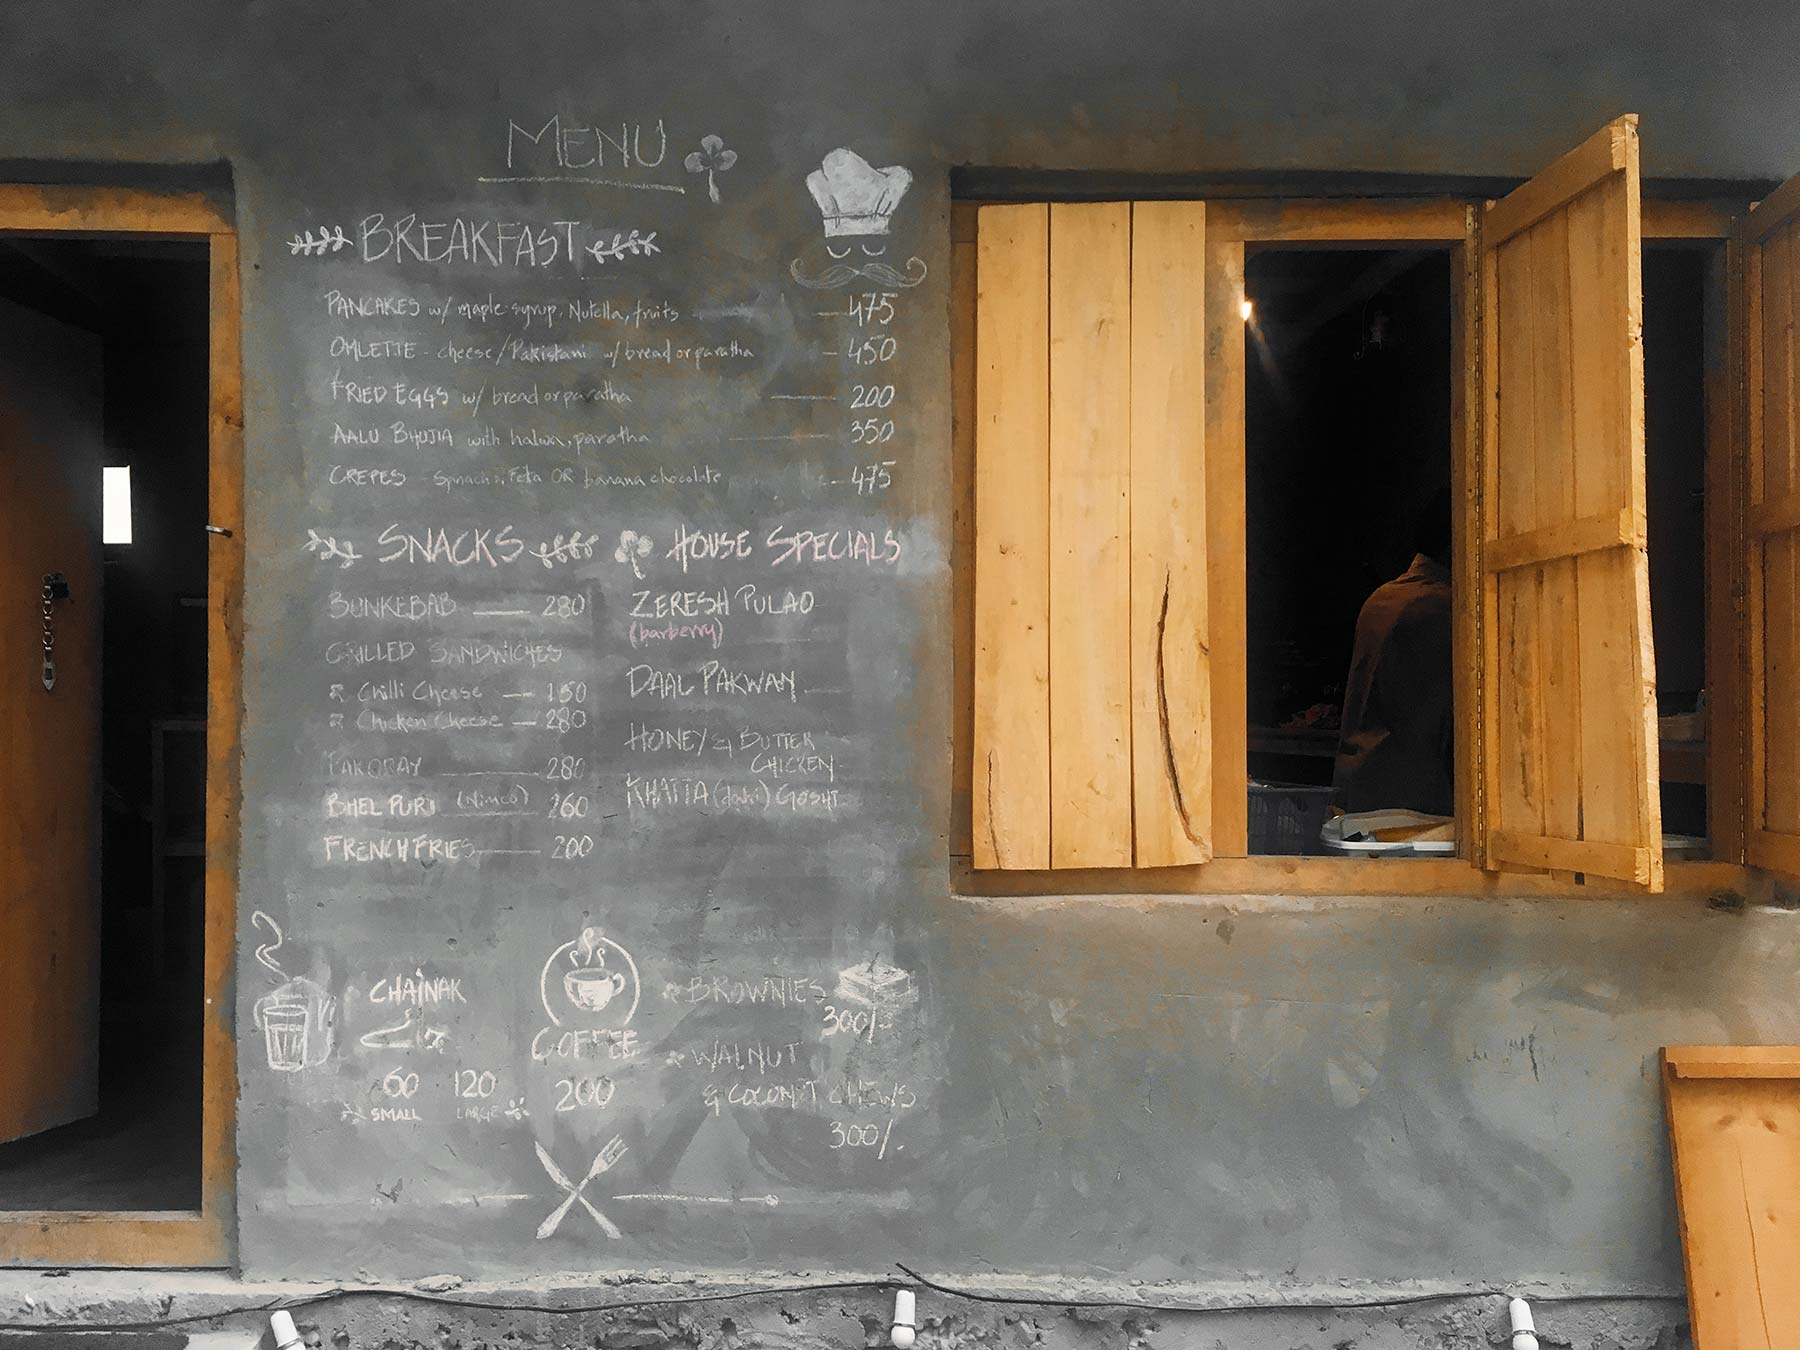 MENU
BREAKFAST
PANCAKES w/ maple syrup, Nutella, fruits — 475
OMLETTE - cheese/Pakistani w/ bread or paratha — 450
FRIED EGGS w/ bread or paratha — 200
AALU BHUJIA with halwa, paratha — 350
CREPES - Spinach, Feta OR banana chocolate — 475
SNACKS
BUNKEBAB — 280
GRILLED SANDWICHES
Chilli Cheese — 150
Chicken Cheese — 280
PAKORAY — 280
BHEL PURI (Nimco) 260
FRENCH FRIES — 200
HOUSE SPECIALS
ZERESH PULAO
(barberry)
DAAL PAKWAN
HONEY & BUTTER
CHICKEN
KHATTA (dahi) GOSHT
CHAINAK
60 120
SMALL LARGE
COFFEE
200
BROWNIES
300/-
WALNUT
& COCONUT CHEWS
300/-